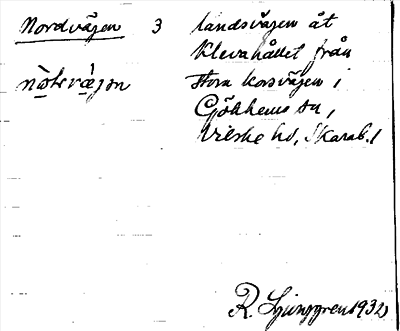 Nordvägen 3 landsvägen åt
Klevahållet från
stora korsvägen i
Gökhems sn,
Vilske hd, Skarab. l
R. Ljunggren 1932